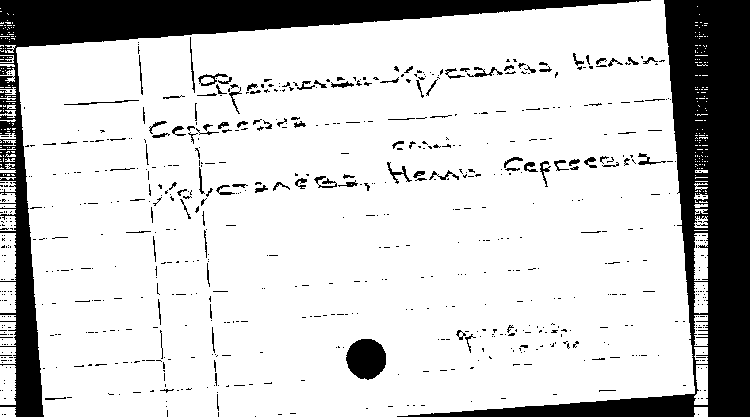 Фрейман-Хрусталёва, Нелли
Сергеевна
см.
Хрусталёва, Нелли Сергеевна